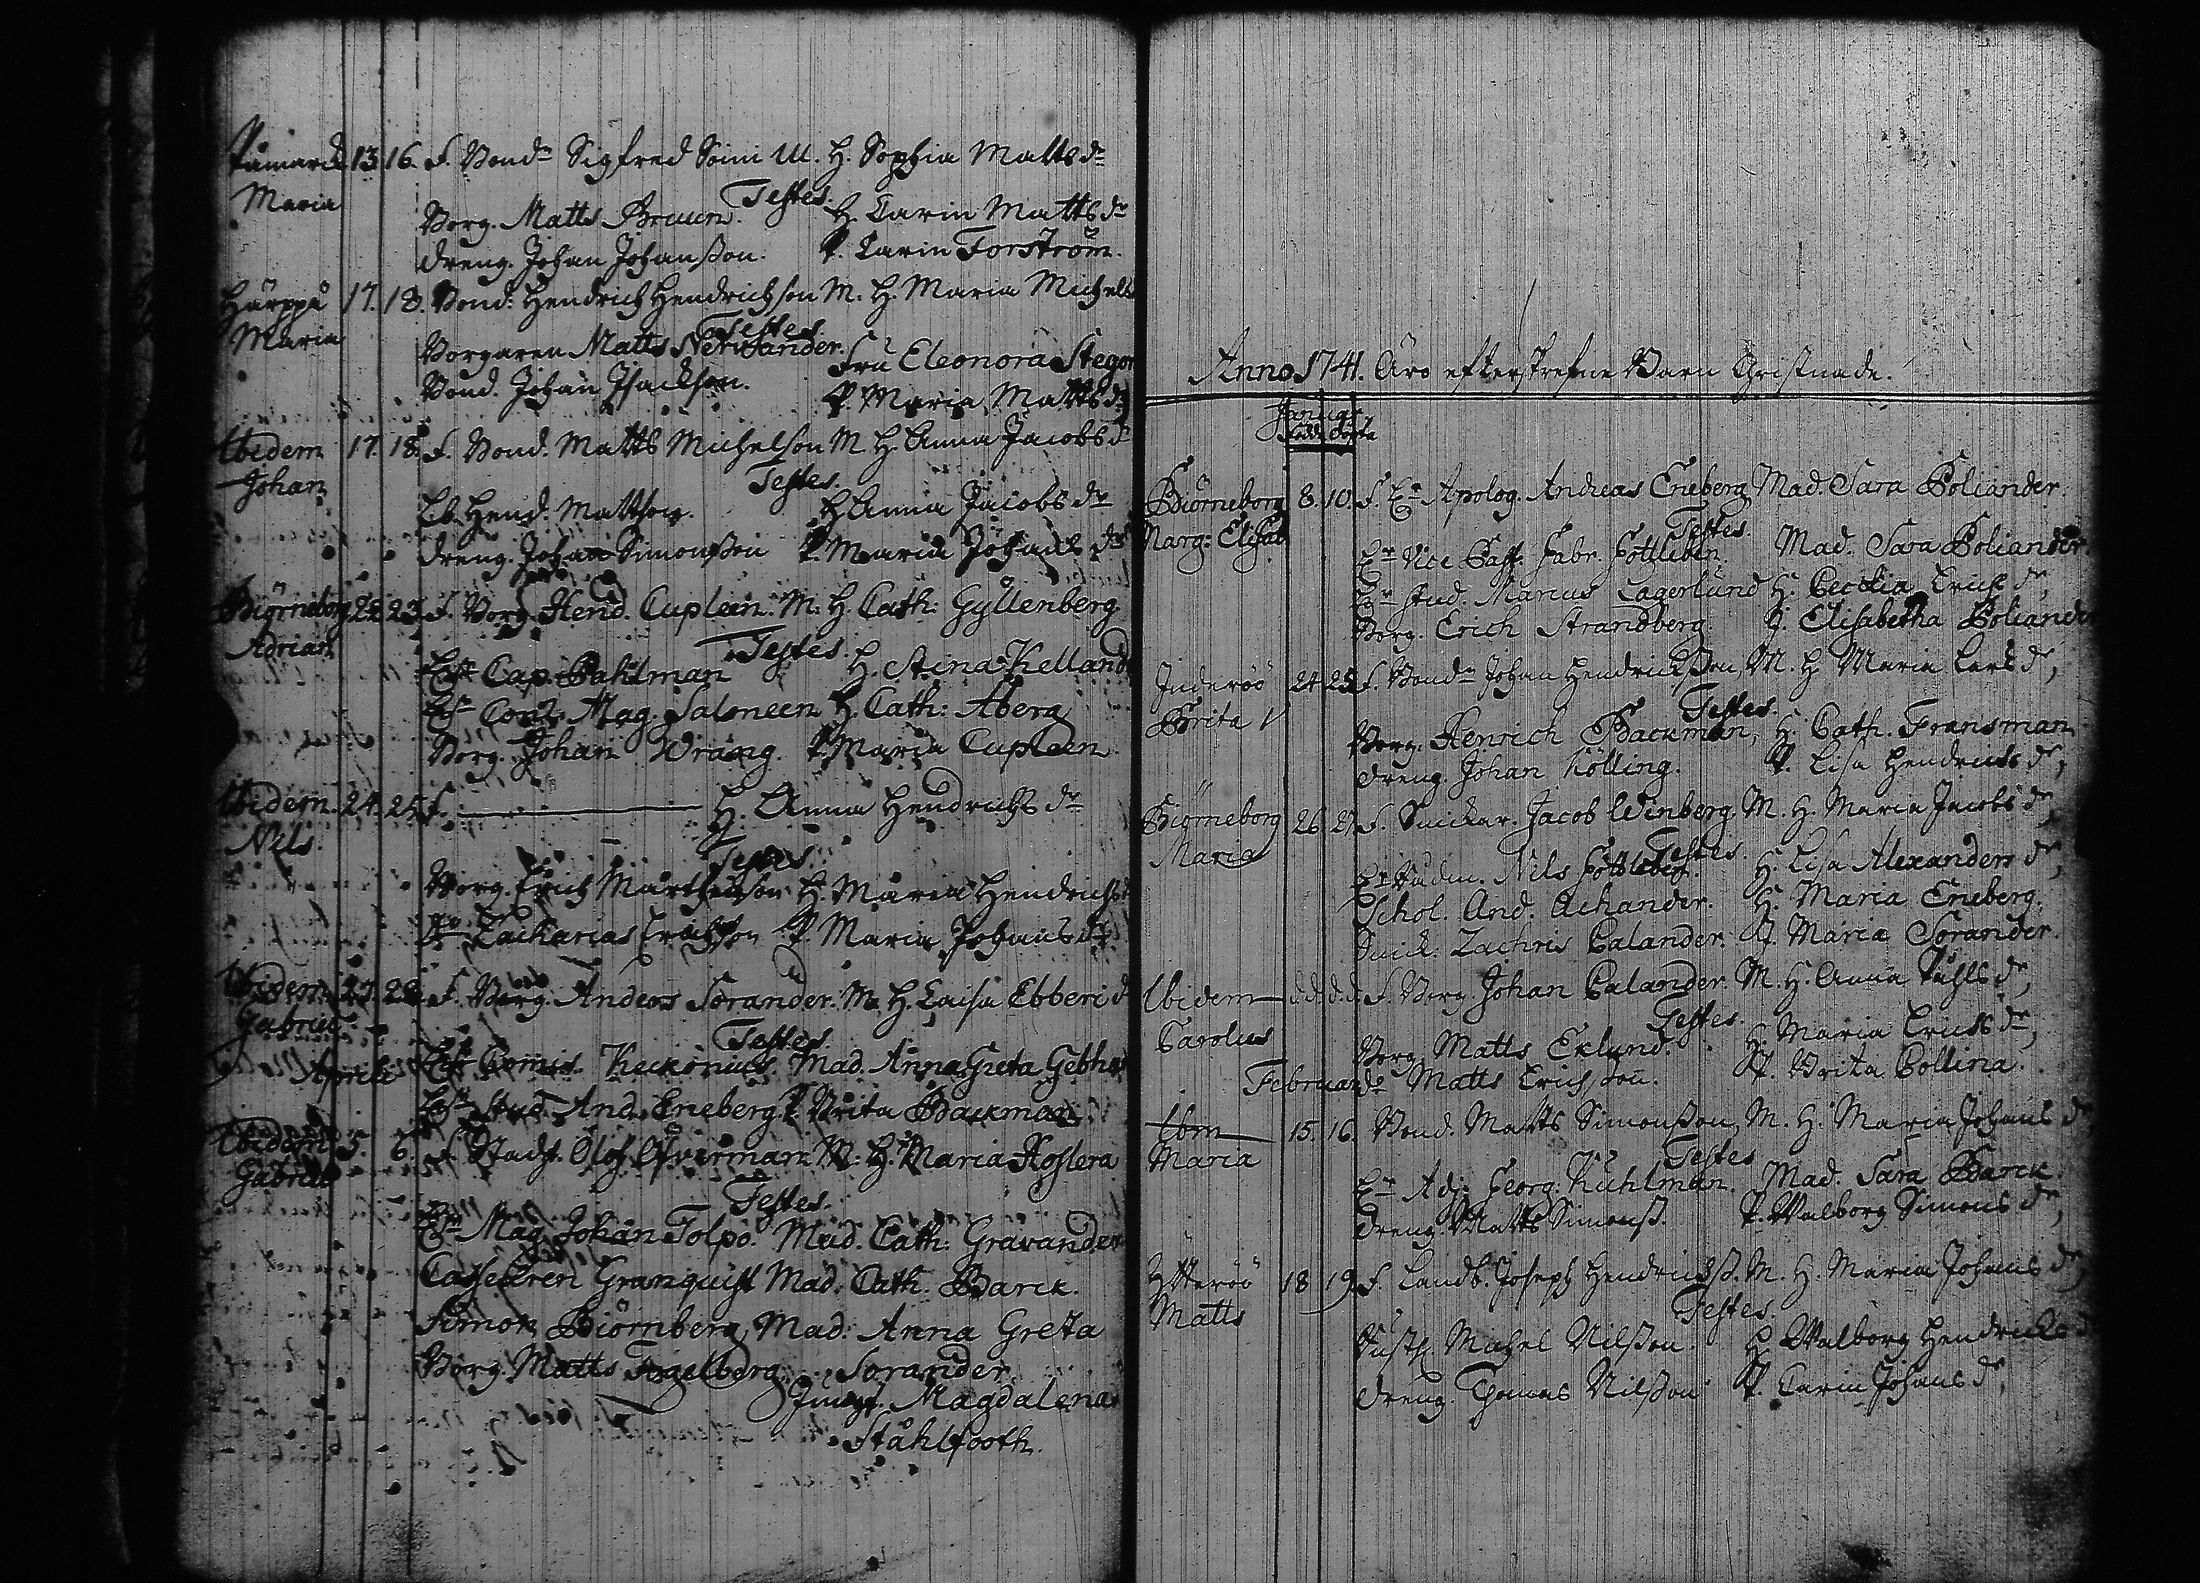 Påmarck 13 16. F. Bondn Sigfred Soini M. H. Sophia Matts dr
Testes.
Maria
Borg. Matts Bruun. H. Carin Matts dr
dreng. Johan Johansson. P. Carin Forström.
Härppö 17. 18. Bond: Hendrich Hendrichson M. H. Maria Michels
Testes.
Maria
Borgaren Matts Nervander. Fru Eleonora Stegor
Bond. Johan Isackson. P. Maria Matts dr
Ibidem 17. 18. F. Bond. Matts Michelson M H. Anna Jacobs dr
Testes.
Johan
Hend. Mattson. H Anna Jacobs dr
dreng. Johan Simonsson P. Maria Johans dr
Biörneborg 22 23 F. Borg. Hend. Cupleen. M. H. Cath: Gyllenberg
Testes.
Adrian
Hr Cap. Pahlman H. Stina Kelland
Hr Con. Mag. Saloneen H. Cath: Åberg
Borg. Johan Wrang. P. Maria Cupleen.
Ibidem 24. 25. F. H. Anna Hendrichs dr
Testes.
Nils.
Borg. Erich Mårthenson H. Maria Hendrichs
Zacharias Erichson P. Maria Johans dr
Ibidem 27. 28. F. Borg. Anders Sorander. M. H. Caisa Ebberi d
Testes.
Gabriel
Hr Comis. Keckonius. Mad. Anna Greta Gebha
Aprilis
Hr Stud. And. Eneberg. P. Brita Backman
Ibidem 5. 6. F. Stadsf. Olof Öfverman M. H. Maria Hoslera
Testes.
Gabriel
Hr Mag Johan Tolpo. Mad. Cath: Gravander
Granquist Mad. Cath. Barck.
Simon Biörnberg Mad: Anna Greta
Borg. Matts Fogelberg. Sorander
Jungf. Magdalena
Ståhlfooth.
Anno 1741. Äro efterskrefne Barn Christnade.
Januar
född döpta
Biörneborg 8. 10. F. Hr Apolog. Andreas Eneberg Mad. Sara Poliander.
Testes.
Marg: Elisab
Hr Vice Past. Fabr. Gottleben. Mad. Sara Poliander.
Hr Stud. Marius Lagerlund H. Cecilia Erichs dr,
Borg. Erich Strandberg. J. Elisabetha Poliande
Inderöö 24 25 F. Bondn Johan Hendrickson, M. H. Maria Lars dr,
Testes.
Brita
Borg. Henrich Backman, H. Cath. Fransman
dreng. Johan Kölling. P. Lisa Hendrichs dr,
Biörneborg 26 27 F. Snickar. Jacob Winberg. M. H. Maria Jacobs dr,
Testes.
Maria
Nils Gottleben. H. Lisa Alexanders dr,
Schol. And. Achander. H. Maria Eneberg.
Snick: Zachris Calander. J. Maria Sorander.
Ibidem d.d. d.d. F. Borg. Johan Calander. M. H. Anna Påhls dr,
Testes.
Carolus
Borg. Matts Eklund. H. Maria Erichs dr,
Februar
Matts Ericsson. P. Brita Pollina.
Ibm 15. 16. Bond. Matts Simonsson, M. H. Maria Johans dr
Testes
Maria
Hr Adj: Georg: Kuhlman. Mad. Sara Barck
dreng. Matts Simonss. P. Walborg Simons dr,
Ytteröö 18 19. F. Landb. Joseph Hendrickss. M. H. Maria Johans dr
Testes.
Matts
Michel Nilsson. H Walborg Hendricks d
dreng. Thomas Nilsson P. Carin Johans dr,